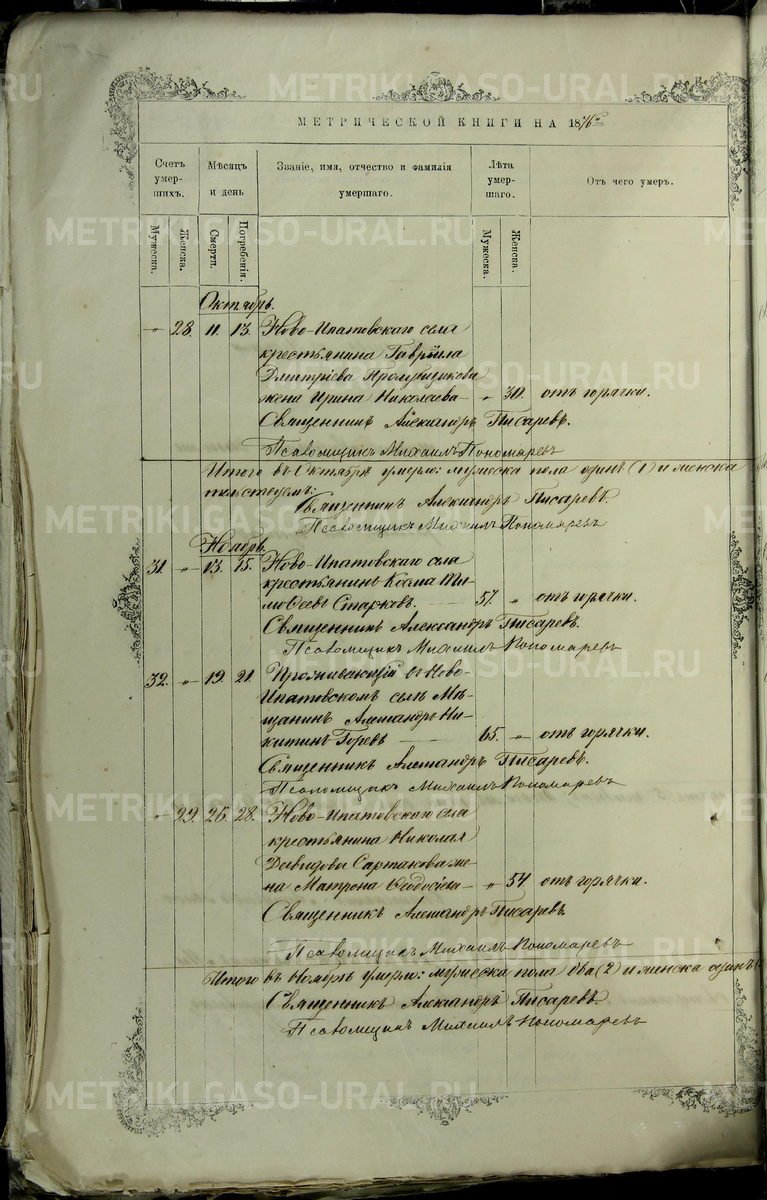 МЕТРИЧЕСКОЙ КНИГИ НА 1876 го
Счетъ умер- шихъ.
Мѣсяцъ и день
Званіе, имя, отчество и фамилія умершаго.
Лѣта умер- шаго.
Отъ чего умеръ.
Мужеска. Женска. Смерти. Погребенія. Мужеска. Женска.
Октябрь.
" 28. 11. 13. Ново-Ипатовскаго села
крестьянина Гавріила
Дмитріева
жена Ирина Николаева — " 30. отъ горячки.
Священникъ Александръ Писаревъ.
Псаломщикъ Михаилъ Пономаревъ
Итого въ Октябрѣ умерло: мужеска пола одинъ (1) и женска
Священникъ Александръ Писаревъ.
Псаломщикъ Михаилъ Пономаревъ
Ноябрь.
31. " 13. 15. Ново-Ипатовскаго села
крестьянинъ Козма Ти-
моѳеевъ Старковъ. — 57. " отъ горячки.
Священникъ Александръ Писаревъ.
Псаломщикъ Михаилъ Пономаревъ
32. " 19. 21. Проживающій въ Ново-
Ипатовскомъ селѣ Мѣ-
щанинъ Александръ Ни-
китинъ Горевъ — 65. " отъ горячки.
Священникъ Александръ Писаревъ.
Псаломщикъ Михаилъ Пономаревъ
" 29. 26. 28. Ново-Ипатовскаго села
крестьянина Николая
Давидова Сартакова же-
на Матрона Ѳеодосіева — " 54 отъ горячки.
Священникъ Александръ Писаревъ.
Псаломщикъ Михаилъ Пономаревъ
Итого въ Ноябрѣ умерло: мужеска пола два (2) и женска одинъ (
Священникъ Александръ Писаревъ.
Псаломщикъ Михаилъ Пономаревъ
METRIKI.GASO-URAL.RU